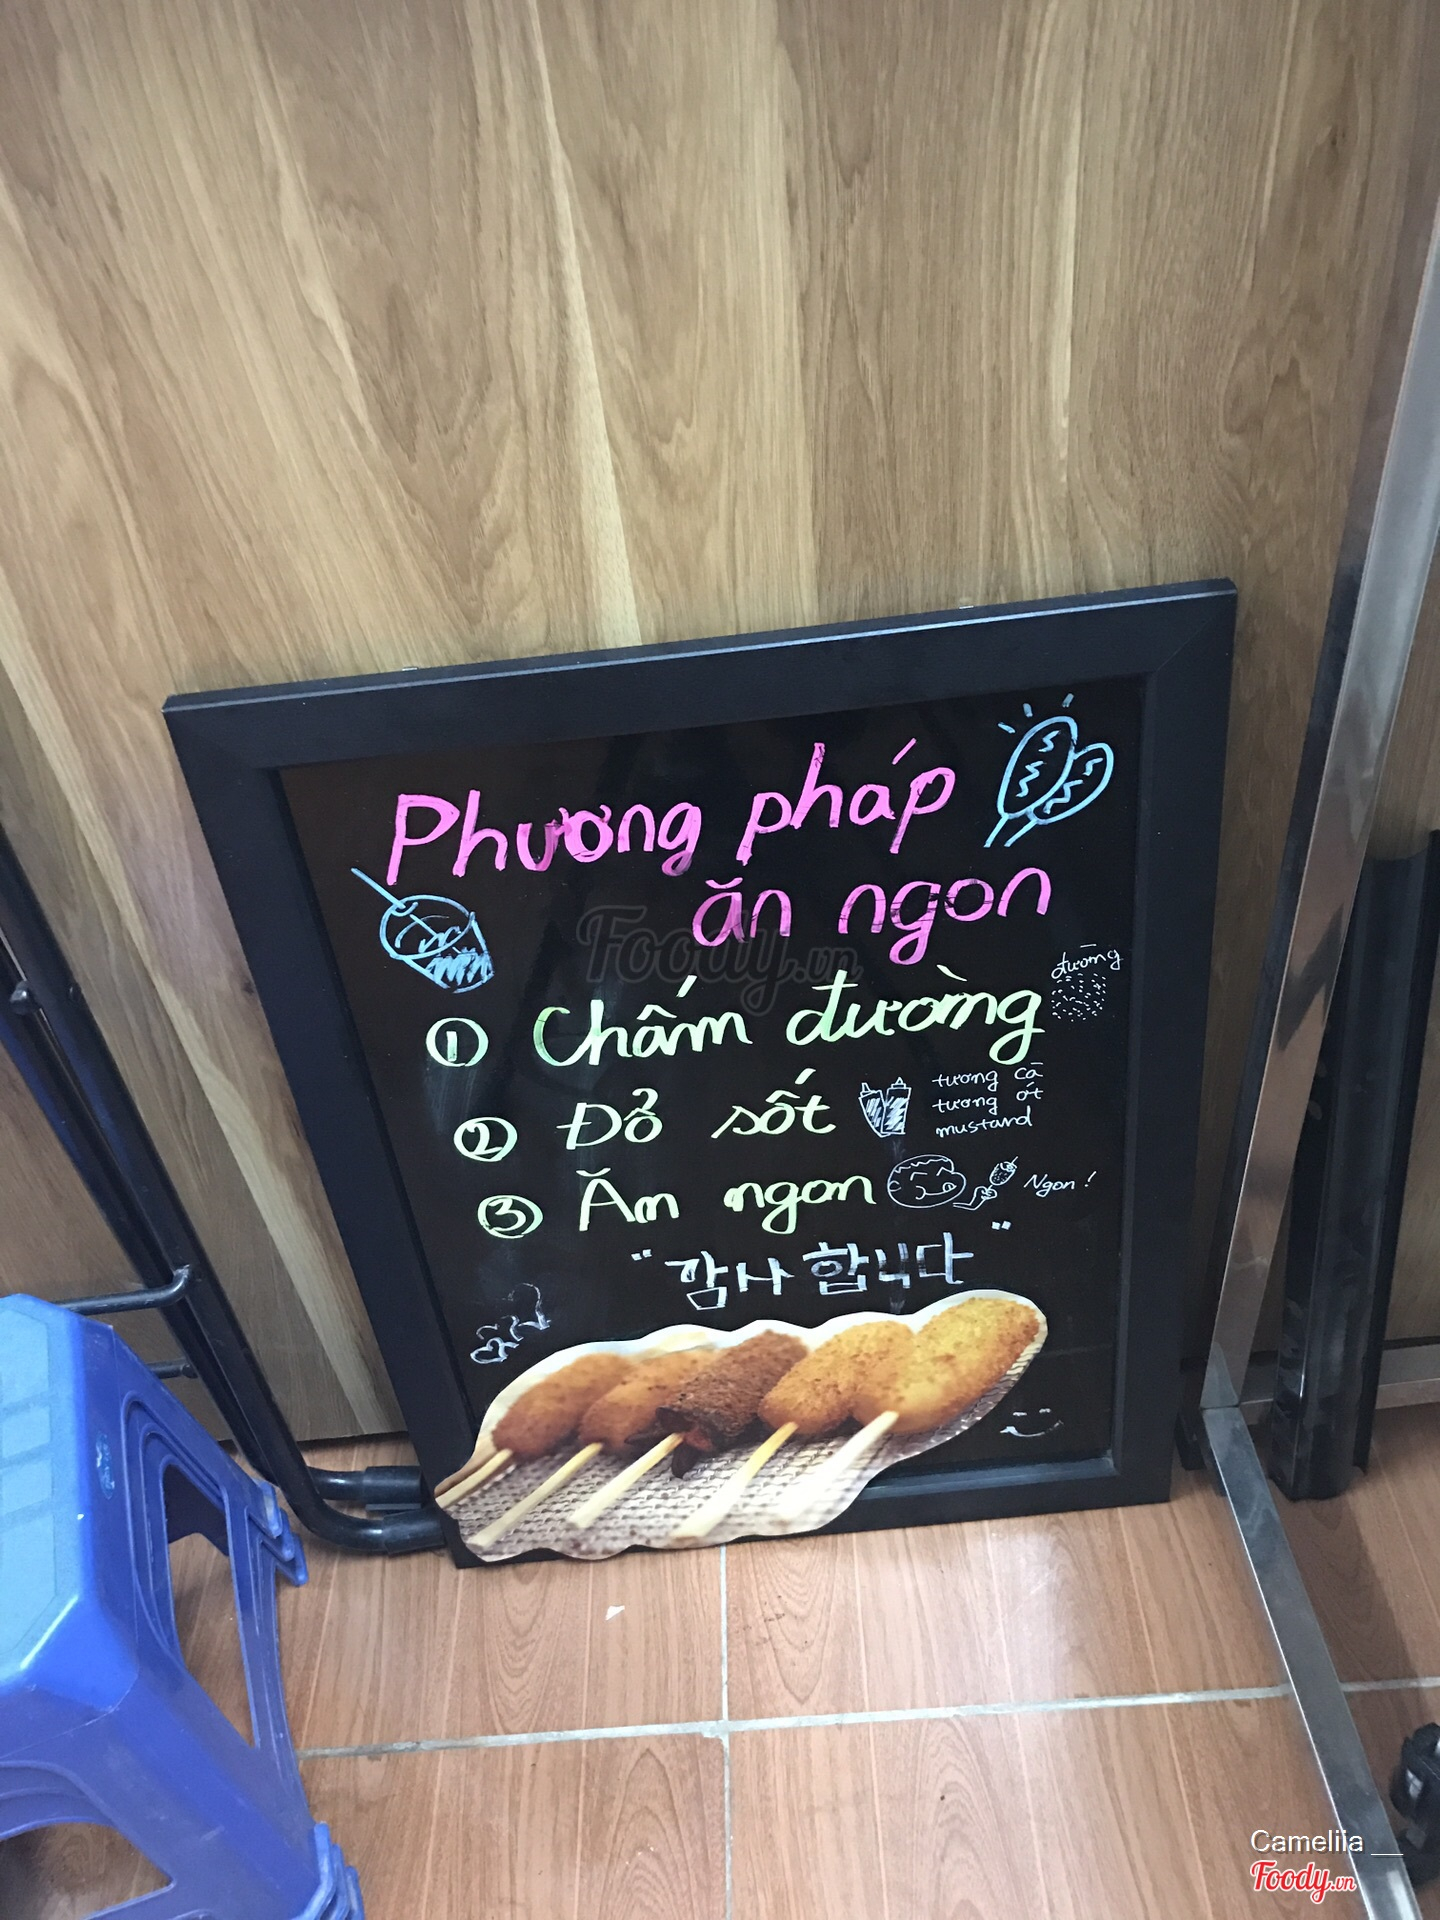 Phương pháp
ăn ngon
Foody.vn
đường
① Chấm đường
② Đổ sốt
tương cà
tương ớt
mustard
③ Ăn ngon
Ngon!
"감사합니다"
Cameliia __
Foody.vn